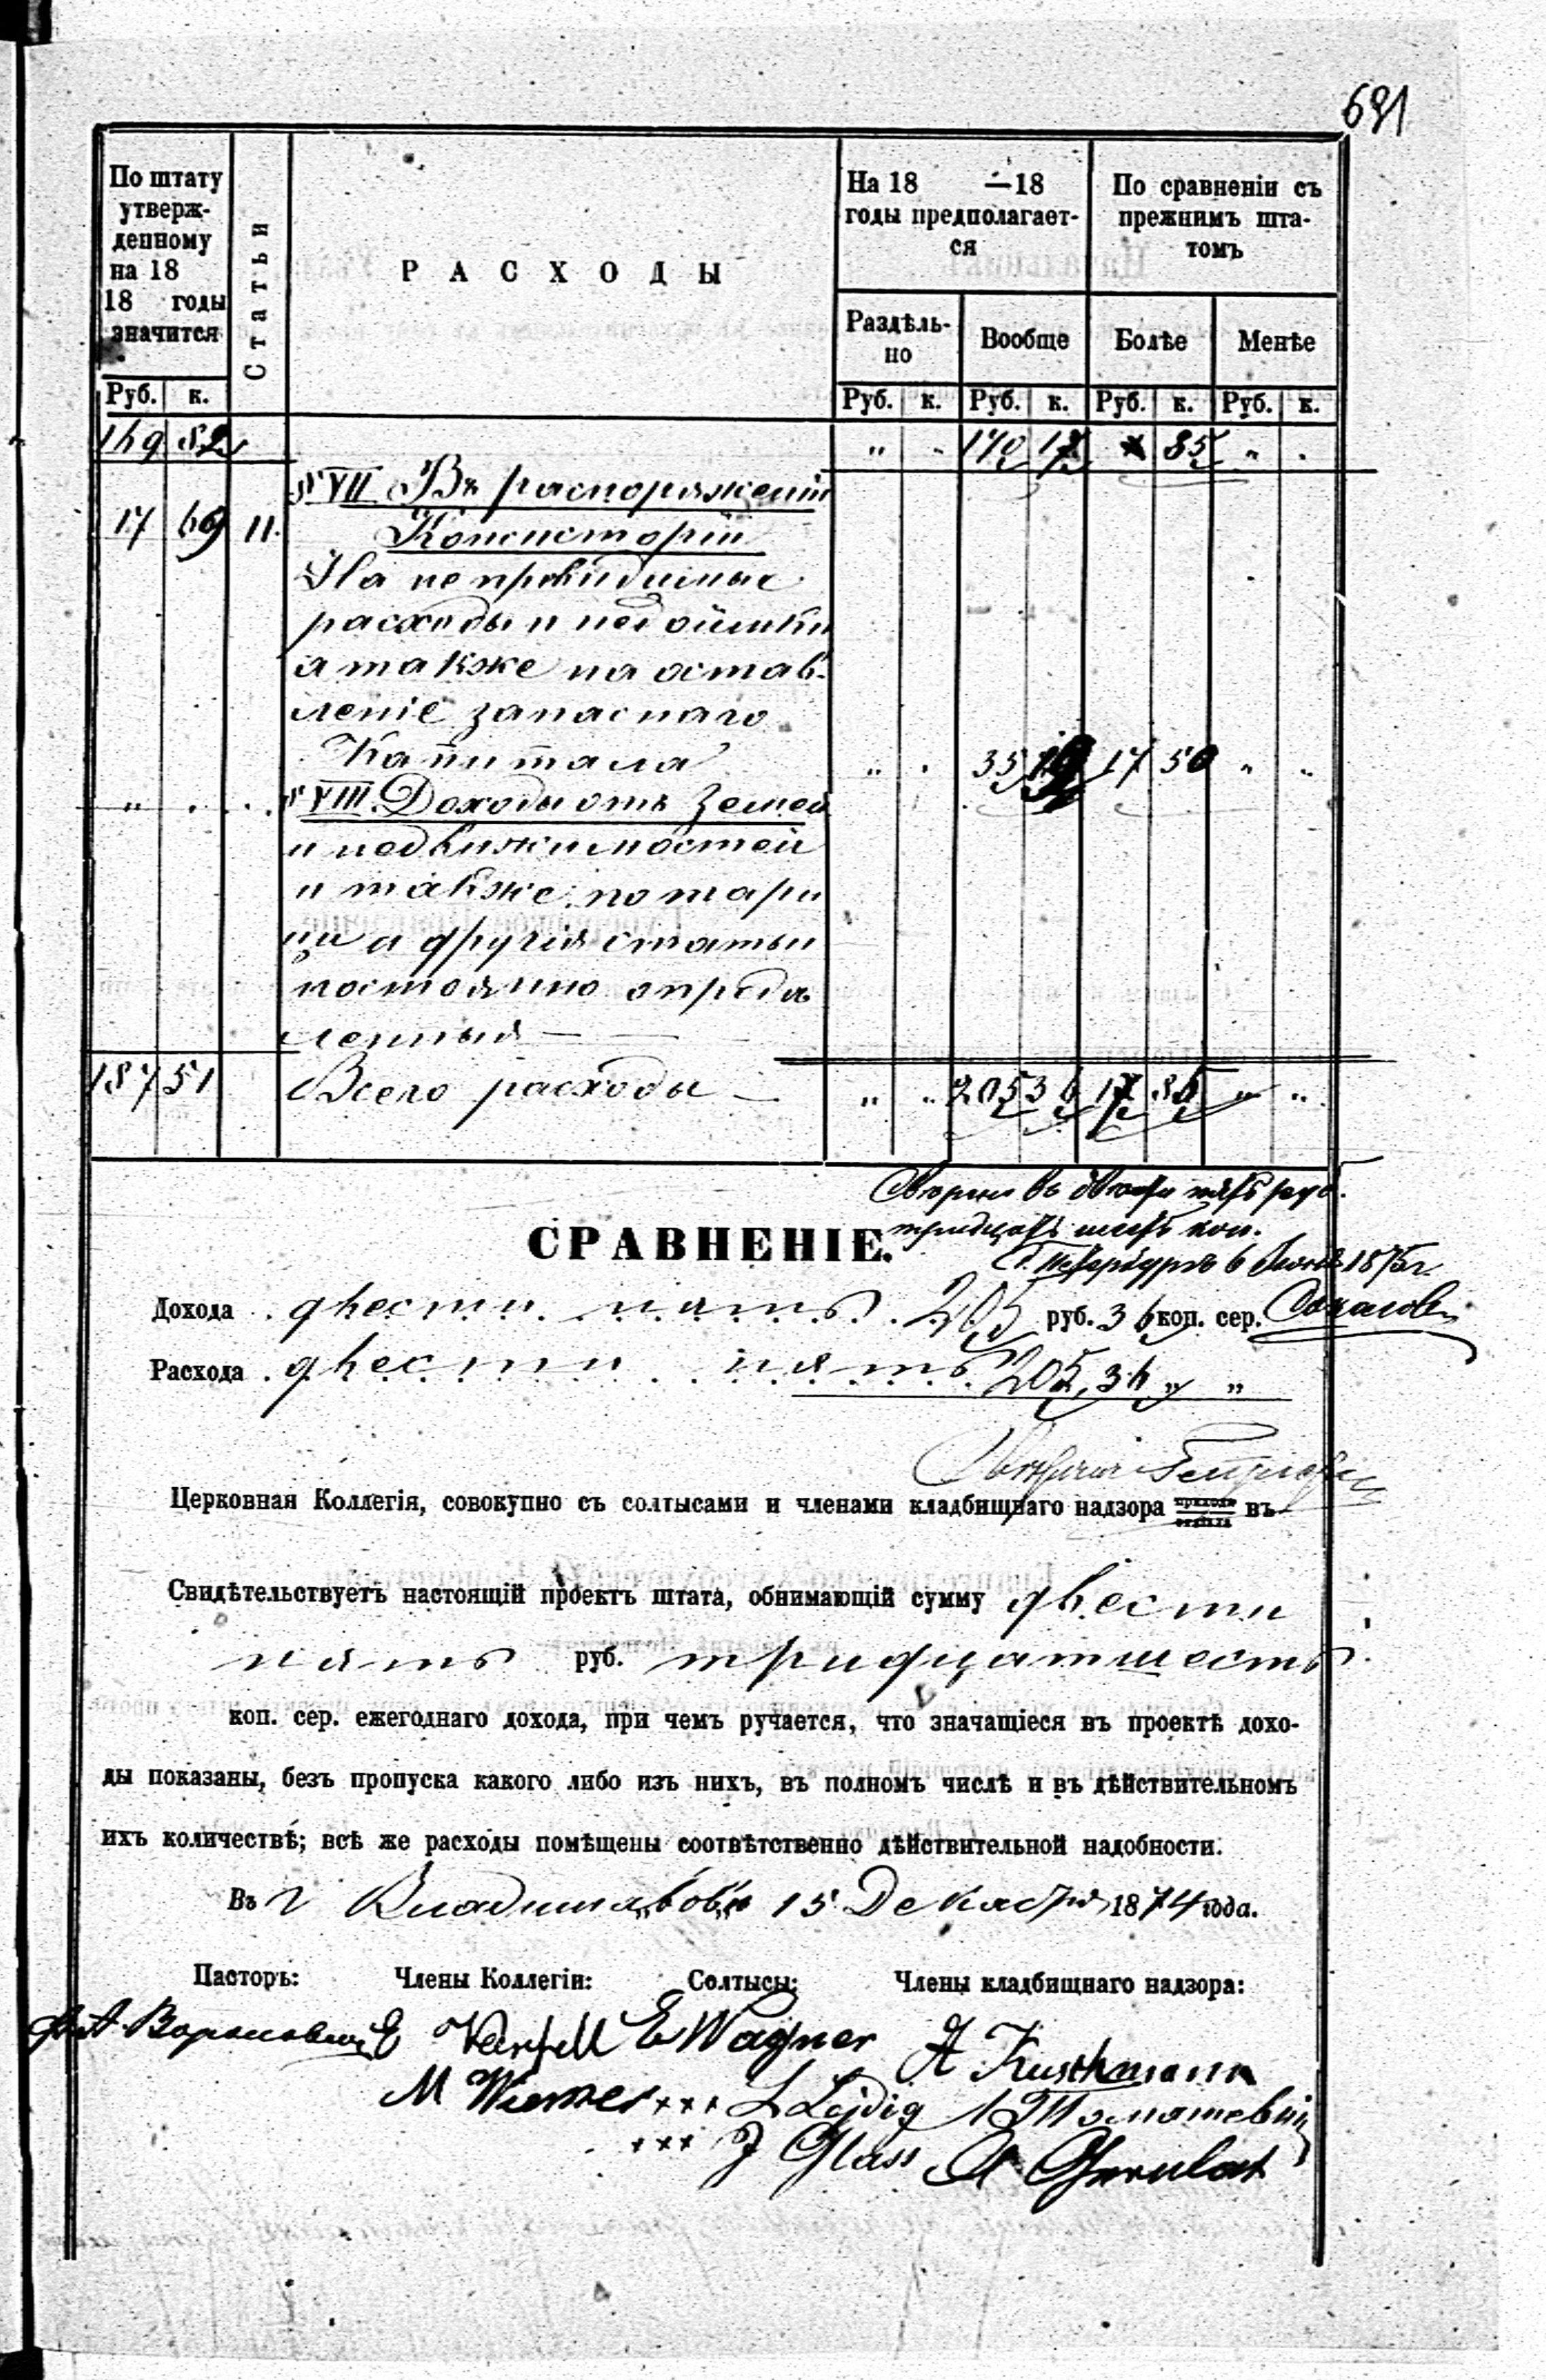 691
По штату
утверж-
денному
на 18
18 годы
значится
Статьи
РАСХОДЫ
На 18 —18
годы предполагает-
ся
По сравненіи съ
прежнимъ шта-
томъ
Раздѣль-
но
Вообще
Болѣе
Менѣе
Руб. к. Руб. к. Руб. к. Руб. к. Руб. к.
169 82 " " 170 17 85 " "
§ VII Въ распоряженіи
17 69 11. Консисторіи
На непревидимые
расходы и недоимки
а также на остав-
леніе запаснаго
Капитала " " 35 19 17 50 " "
" " " § VIII. Доходы отъ земель
и недвижимостей
и также нотари
ци и другія статьи
постоянно опредѣ
ленныя — —
187 51 Всего расходы — " " 205 36 17 85 " "
въ двѣсти пять руб.
тридцать шесть коп.
СРАВНЕНІЕ.
6 1875 г.
Дохода двести пять 205 руб. 36 коп. сер.
Расхода двести пять 205, 36 " "
Церковная Коллегія, совокупно съ солтысами и членами кладбищнаго надзора прихода въ
отдѣла
Свидѣтельствуетъ настоящій проектъ штата, обнимающій сумму двести
пять руб. тридцатшесть
коп. сер. ежегоднаго дохода, при чемъ ручается, что значащіеся въ проектѣ дохо-
ды показаны, безъ пропуска какого либо изъ нихъ, въ полномъ числѣ и въ дѣйствительномъ
ихъ количествѣ; всѣ же расходы помѣщены соотвѣтственно дѣйствительной надобности.
Въ г 15 Декабря 1874 года.
Пасторъ: Члены Коллегіи: Солтысы: Члены кладбищнаго надзора:
E Wagner
A Kuschmann
M Wiemer xxx L Lejdig
xxx J Glass